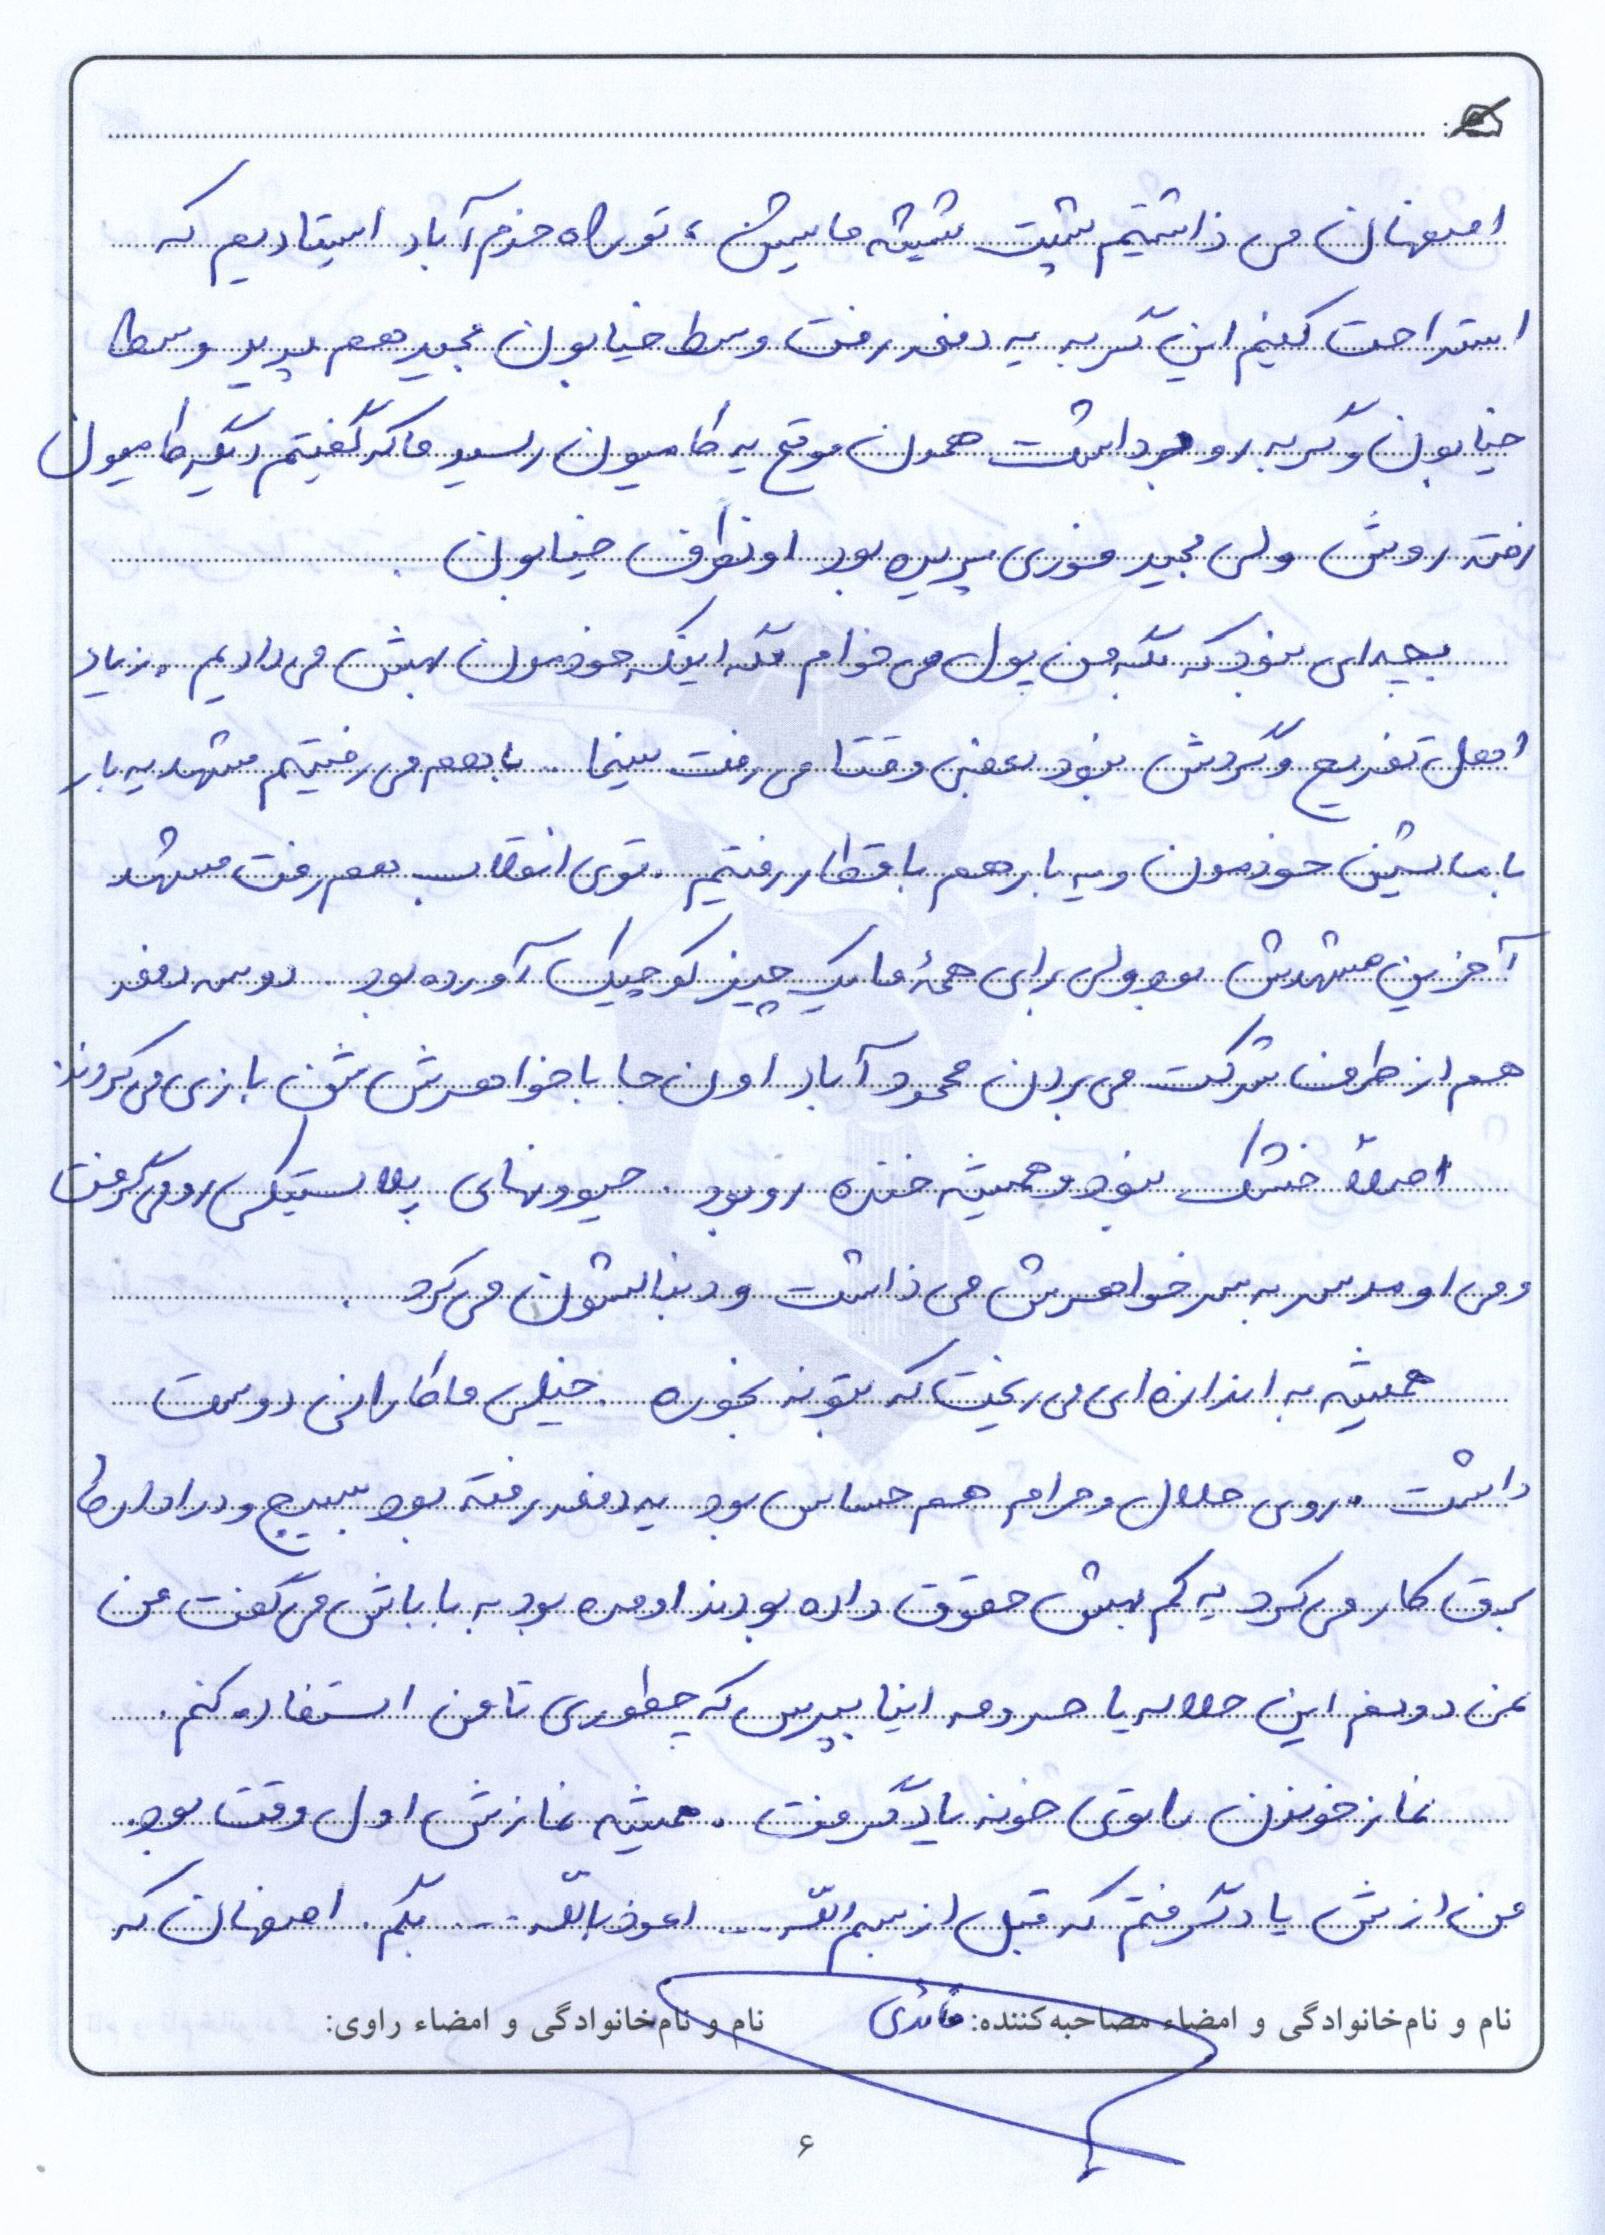 اصفهان می ذاشتیم پشت شیشه ماشین، تو راه خرم آباد ایستادیم که
استراحت کنیم این گربه یه دفعه رفت وسط خیابون مجید هم پرید وسط
خیابون و گربه رو برداشت همون موقع یه کامیون رسید ما که گفتیم دیگه کامیون
رفته روش ولی مجید فوری پریده بود اونطرف خیابون.
بچه ای نبود که بگه من پول می خوام مگه اینکه خودمون بهش می دادیم. زیاد
اهل تفریح و گردش نبود بعضی وقتا می رفت سینما. با هم می رفتیم مشهد یه بار
با ماشین خودمون و یه بار هم با قطار رفتیم. توی انقلاب هم رفت مشهد
آخرین مشهدش بود ولی برای همهٔ ما یک چیز کوچیک آورده بود. دو سه دفعه
هم از طرف شرکت می بردن محمود آباد اون جا با خواهرش شن بازی می کردند.
اصلاً خشک نبود و همیشه خنده رو بود. حیوونهای پلاستیکی رو می گرفت
و می اومد سر به سر خواهرش می ذاشت و دنبالشون می کرد.
همیشه به اندازه ای می ریخت که بتونه بخوره. خیلی ماکارانی دوست
داشت. روی حلال و حرام هم حساس بود یه دفعه رفته بود بسیج و در اداره
برق کار می کرد یه کم بهش حقوق داده بودند اومده بود به باباش می گفت من
نمی دونم این حلاله یا حرومه اینا بپرس که چطوری تا من استفاده کنم.
نماز خوندن را توی خونه یاد گرفت. همیشه نمازش اول وقت بود.
من ازش یاد گرفتم که قبل از بسم الله... اعوذ بالله... بگم. اصفهان که
نام و نام‌خانوادگی و امضاء مصاحبه‌کننده: نام و نام‌خانوادگی و امضاء راوی:
۶